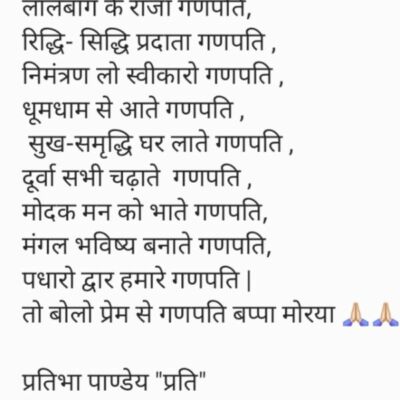 लालबाग के राजा गणपति,
रिद्धि- सिद्धि प्रदाता गणपति ,
निमंत्रण लो स्वीकारो गणपति ,
धूमधाम से आते गणपति ,
सुख-समृद्धि घर लाते गणपति ,
दूर्वा सभी चढ़ाते गणपति ,
मोदक मन को भाते गणपति,
मंगल भविष्य बनाते गणपति,
पधारो द्वार हमारे गणपति |
तो बोलो प्रेम से गणपति बप्पा मोरया 🙏🙏
प्रतिभा पाण्डेय "प्रति"